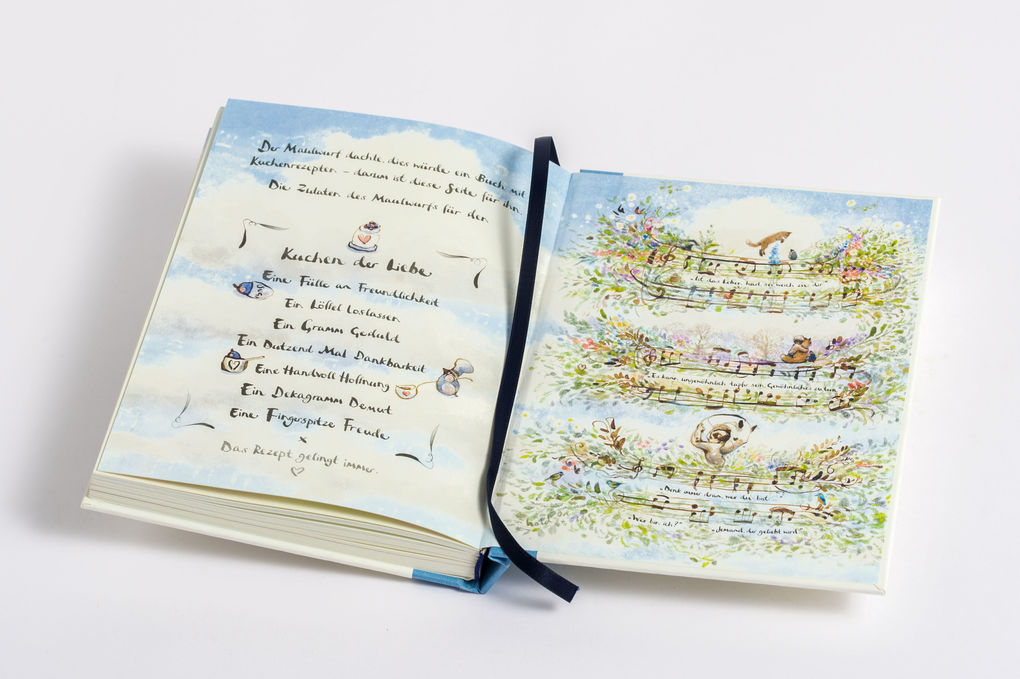 Der Maulwurf dachte, dies würde ein Buch mit
Kuchenrezepten – darum ist diese Seite für ihn.
Die Zutaten des Maulwurfs für den
Kuchen der Liebe
Eine Fülle an Freundlichkeit
Ein Löffel Loslassen
Ein Gramm Geduld
Ein Dutzend Mal Dankbarkeit
Eine Handvoll Hoffnung
Ein Dekagramm Demut
Eine Fingerspitze Freude
x
Das Rezept gelingt immer.
„Ist das Leben hart, sei weich zu dir.“
„Es kann ungewöhnlich tapfer sein, Gewöhnliches zu tun.“
„Denk immer dran, wer du bist.“
„Wer bin ich?“
„Jemand, der geliebt wird.“